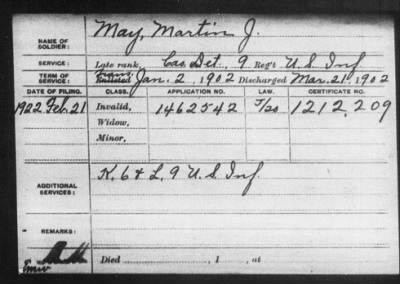 May, Martin J.
NAME OF SOLDIER:
SERVICE: Late rank, Cas. Det., 9 Reg't U.S. Inf
TERM OF SERVICE: Trans. Enlisted Jan. 2, 1902 Discharged Mar. 21, 1902
DATE OF FILING. CLASS. APPLICATION NO. LAW. CERTIFICATE NO.
1922 Feb. 21 Invalid, 1462542 1212,209
Widow,
Minor,
ADDITIONAL SERVICES: K, 6 & L, 9 U.S. Inf
REMARKS:
Died , 1 , at